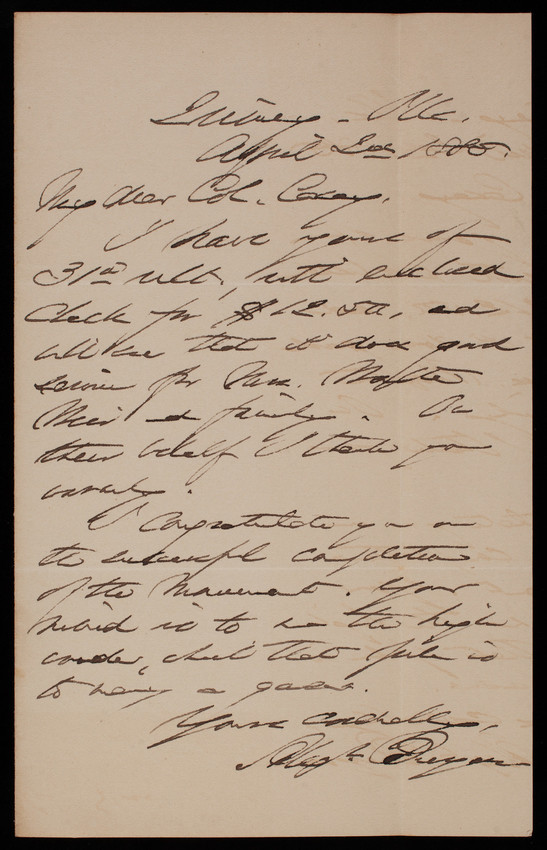 Quincy - Ills.
April 2nd 1885.
My dear Col. Casey,
I have yours of
31st ult., with enclosed
check for $12.50, and
will see that it does good
service for Mrs.
and family. On
their behalf I thank you
warmly.
I congratulate you on
the successful completion
of the Monument. Your
is to me the high
wonder, while that pile is
to many a gazer.
Yours cordially,